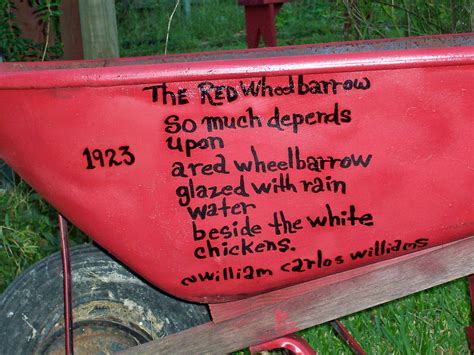 The RED Wheelbarrow
So much depends
upon
1923
a red wheelbarrow
glazed with rain
water
beside the white
chickens.
~William Carlos Williams